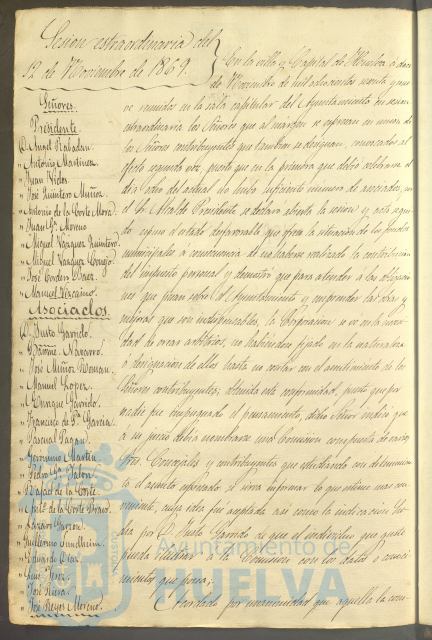 Sesion extraordinaria del
12 de Noviembre de 1869.
Señores.
Presidente.
D. Angel Rabadan
" Antonio Martinez
" Juan Vides
" José Quintero Muñoz
" Antonio de la Corte Mora
" Juan Gª Moreno
" Miguel Vazquez Quintero
" Miguel Vazquez Crespo
" José Cordero Baez
" Manuel Vizcaino
Asociados.
D. Justo Garrido.
" Navarro.
" José Muñoz
" Manuel Lopez.
" Enrique Garrido.
" Francisco de Pª Garcia.
" Pascual Pagan.
" Geronimo Martin
" Pedro Gª Jalon.
" Rafael de la Corte.
" de la Corte Bravo.
" Lazaro Garzon.
" Guillermo Sundheim.
" Eduardo Diaz
" Perez
" José Riera.
" José Reyes Moreno.
En la villa y Capital de Huelva a doce
de Noviembre de mil ochocientos sesenta y nue
ve reunidos en la sala capitular del Ayuntamiento en sesion
extraordinaria los Señores que al margen se espresan en union de
los Señores contribuyentes que tambien se designan, convocados al
efecto segunda vez, puesto que en la primera que debió celebrarse el
dia ocho del actual no hubo suficiente numero de asociados, por
el Sr. Alcalde Presidente se declaró abierta la sesion y acto segui
do espuso el estado desfavorable que ofrece la situacion de los fondos
municipales á consecuencia de no haberse realizado la contribucion
del impuesto personal y demostró que para atender a las obligacio
nes que pesan sobre el Ayuntamiento y emprender las obras y
mejoras que son indispensables, la Corporacion se ve en la necesi
dad de crear arbitrios, no habiendose fijado en la naturaleza
o designacion de ellos hasta no contar con el asentimiento de los
Señores contribuyentes; obtenida esta conformidad, puesto que por
nadie fue impugnado el pensamiento, dicho Señor indicó que
a su juicio debia nombrarse una Comision compuesta de varios
Sres. Concejales y contribuyentes que estudiando con detenimien
to el asunto espresado se sirva informar lo que estime mas con
veniente, cuya idea fue aceptada asi como la indicacion he
cha por D. Justo Garrido de que el individuo que guste
pueda ilustrar a la Comision con los datos o conoci
mientos que posea.
Acordado por unanimidad que aquella la com-
Ayuntamiento de
HUELVA